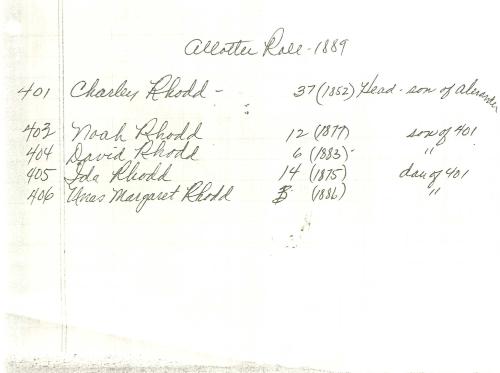 Allottee Roll - 1889
401 Charley Rhodd - 37 (1852) Head - son of Alexander
403 Noah Rhodd 12 (1877) son of 401
404 David Rhodd 6 (1883) "
405 Ida Rhodd 14 (1875) dau of 401
406 Margaret Rhodd 3 (1886) "